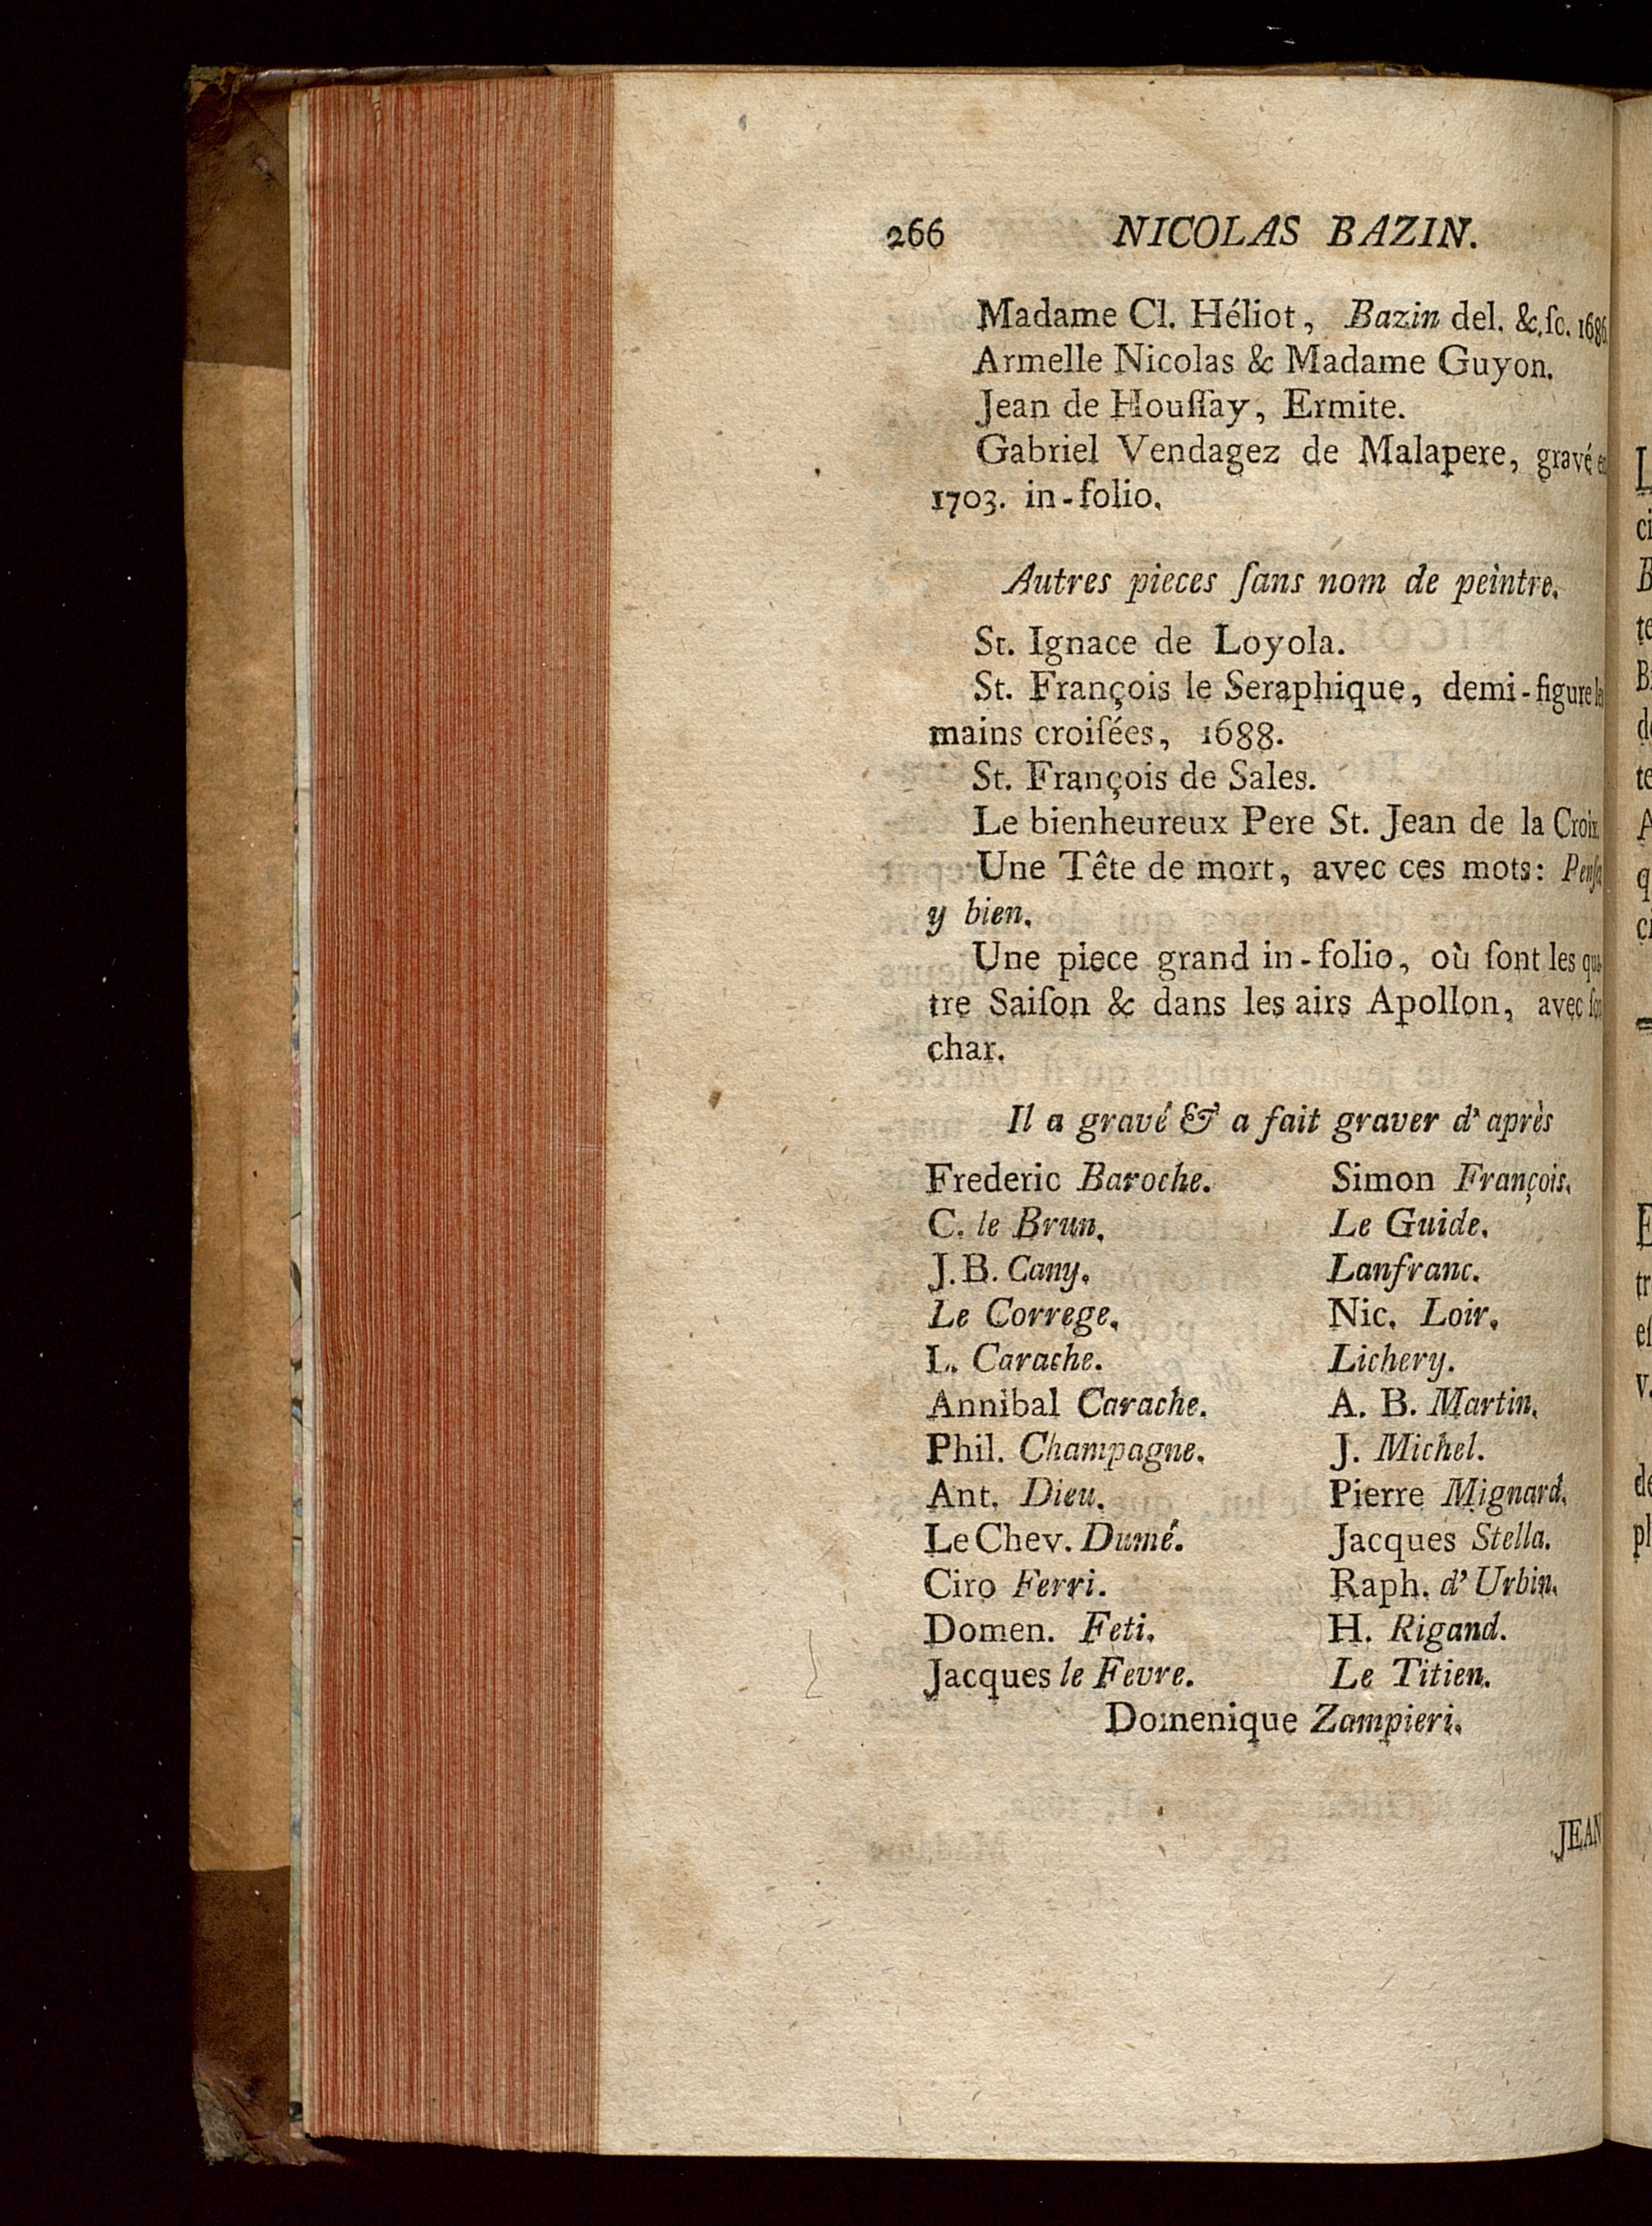 266 NICOLAS BAZIN.
Madame Cl. Héliot, Bazin del. &.ſc. 1686.
Armelle Nicolas & Madame Guyon.
Jean de Houſſay, Ermite.
Gabriel Vendagez de Malapere, gravé en
1703. in-folio.
Autres pieces ſans nom de peintre.
St. Ignace de Loyola.
St. François le Seraphique, demi-figure
mains croiſées, 1688.
St. François de Sales.
Le bienheureux Pere St. Jean de la Croix.
Une Tête de mort, avec ces mots:
y bien.
Une piece grand in-folio, où ſont les qua-
tre Saiſon & dans les airs Apollon, avec ſon
char.
Il a gravé & a fait graver d'après
Frederic Baroche. Simon François.
C. le Brun. Le Guide.
J. B. Cany. Lanfranc.
Le Correge. Nic. Loir.
L. Carache. Lichery.
Annibal Carache. A. B. Martin.
Phil. Champagne. J. Michel.
Ant. Dieu. Pierre Mignard.
Le Chev. Dumé. Jacques Stella.
Ciro Ferri. Raph. d'Urbin.
Domen. Feti. H. Rigand.
Jacques le Fevre. Le Titien.
Domenique Zampieri.
JEAN